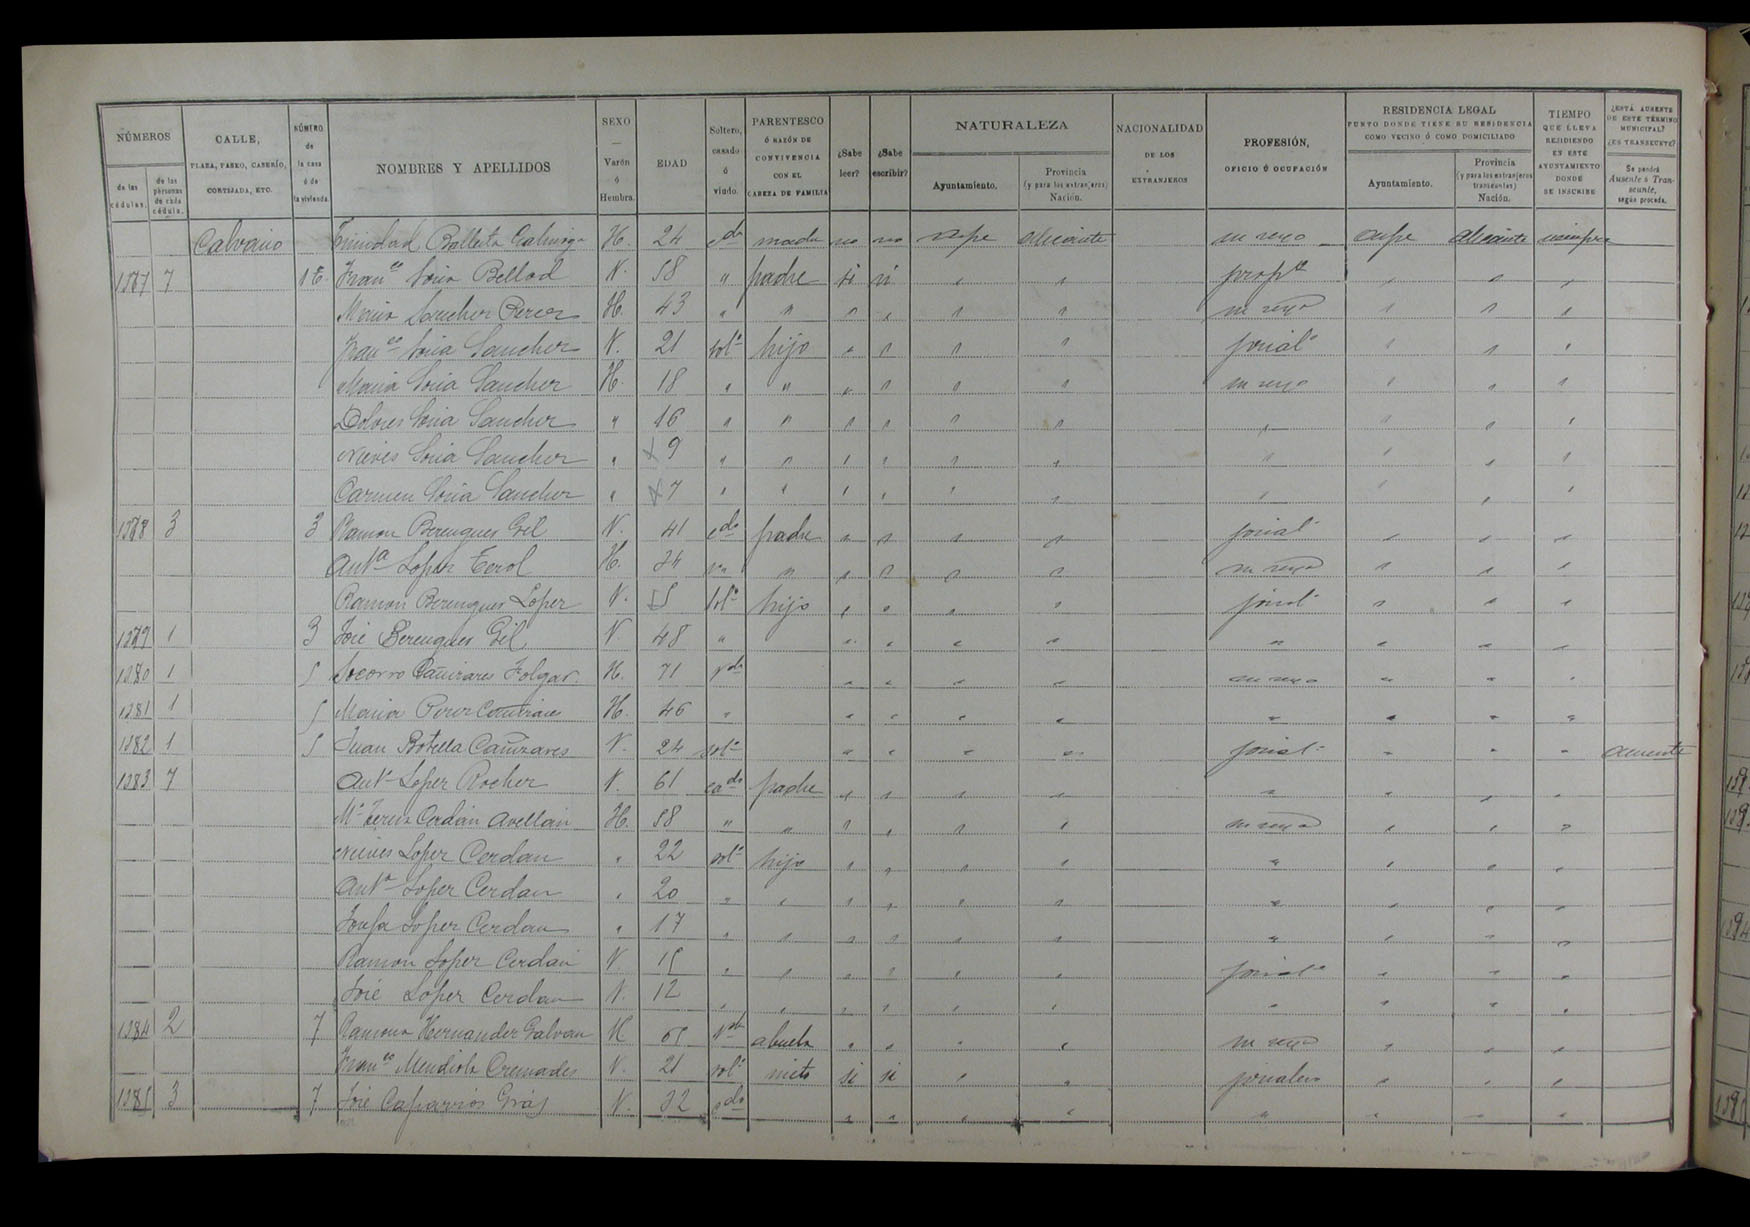 NÚMEROS
de las cédulas.
de las personas de cada cédula.
CALLE,
PLAZA, PASEO, CASERÍO,
CORTIJADA, ETC.
NÚMERO de la casa ó de la vivienda.
NOMBRES Y APELLIDOS
SEXO — Varón ó Hembra.
EDAD
Soltero, casado ó viudo.
PARENTESCO Ó RAZÓN DE CONVIVENCIA CON EL CABEZA DE FAMILIA
¿Sabe leer?
¿Sabe escribir?
NATURALEZA
Ayuntamiento.
Provincia (y para los extranjeros) Nación.
NACIONALIDAD DE LOS EXTRANJEROS
PROFESIÓN, OFICIO Ó OCUPACIÓN
RESIDENCIA LEGAL
PUNTO DONDE TIENE SU RESIDENCIA COMO VECINO Ó COMO DOMICILIADO
Ayuntamiento.
Provincia (y para los extranjeros transeuntes) Nación.
TIEMPO QUE LLEVA RESIDIENDO EN ESTE AYUNTAMIENTO DONDE SE INSCRIBE
¿ESTÁ AUSENTE DE ESTE TÉRMINO MUNICIPAL? ¿ES TRANSEUNTE?
Se pondrá Ausente ó Transeunte, según proceda.
Calvario Trinidad Ballesta H. 24 cda no no aspe alicante su sexo aspe alicante siempre
1377 7 Franco Soria Bellod V. 58 " padre si si " " propº " " "
Maria Sanchez Perez H. 43 " " " " " " su sexo " " "
Franco Soria Sanchez V. 21 solº hijo " " " " jornalº " " "
Maria Soria Sanchez H. 18 " " " " " " su sexo " " "
Dolores Soria Sanchez " 16 " " " " " " " " " "
Nieves Soria Sanchez " 9 " " " " " " " " " "
Carmen Soria Sanchez " 7 " " " " " " " " " "
1378 3 3 Ramon Berenguer Gil V. 41 cdo padre " " " " jornalº " " "
Antª Lopez Terol H. 34 " " " " " " su sexo " " "
Ramon Berenguer Lopez V. solº hijo " " " " jornalº " " "
1379 1 3 José Berenguer Gil V. 48 " " " " " " " " "
1380 1 5 Socorro Cañizares H. 71 Vda " " " " su sexo " " "
1381 1 5 Maria Perez H. 46 " " " " " " " " "
1382 1 5 Juan Botella Cañizares V. 24 solº " " " " jornalº " " " ausente
1383 7 Antº Lopez Rocher V. 61 cado padre " " " " " " " "
Mª Teresa Cerdán Avellán H. 58 " " " " " " su sexo " " "
Nieves Lopez Cerdan " 22 solº hijo " " " " " " " "
Antª Lopez Cerdan " 20 " " " " " " " " " "
Josefa Lopez Cerdan " 17 " " " " " " " " " "
Ramon Lopez Cerdan V. 15 " " " " " " jornalº " " "
José Lopez Cerdan V. 12 " " " " " " " " " "
1384 2 7 Ramona Hernandez Galvan H 65 Vda abuela " " " " su sexo " " "
Franco Mendiola Cremades V. 21 solº nieto si si " " jornalero " " "
1385 3 7 José Caparros Gras V. 32 cdo " " " " " " " "